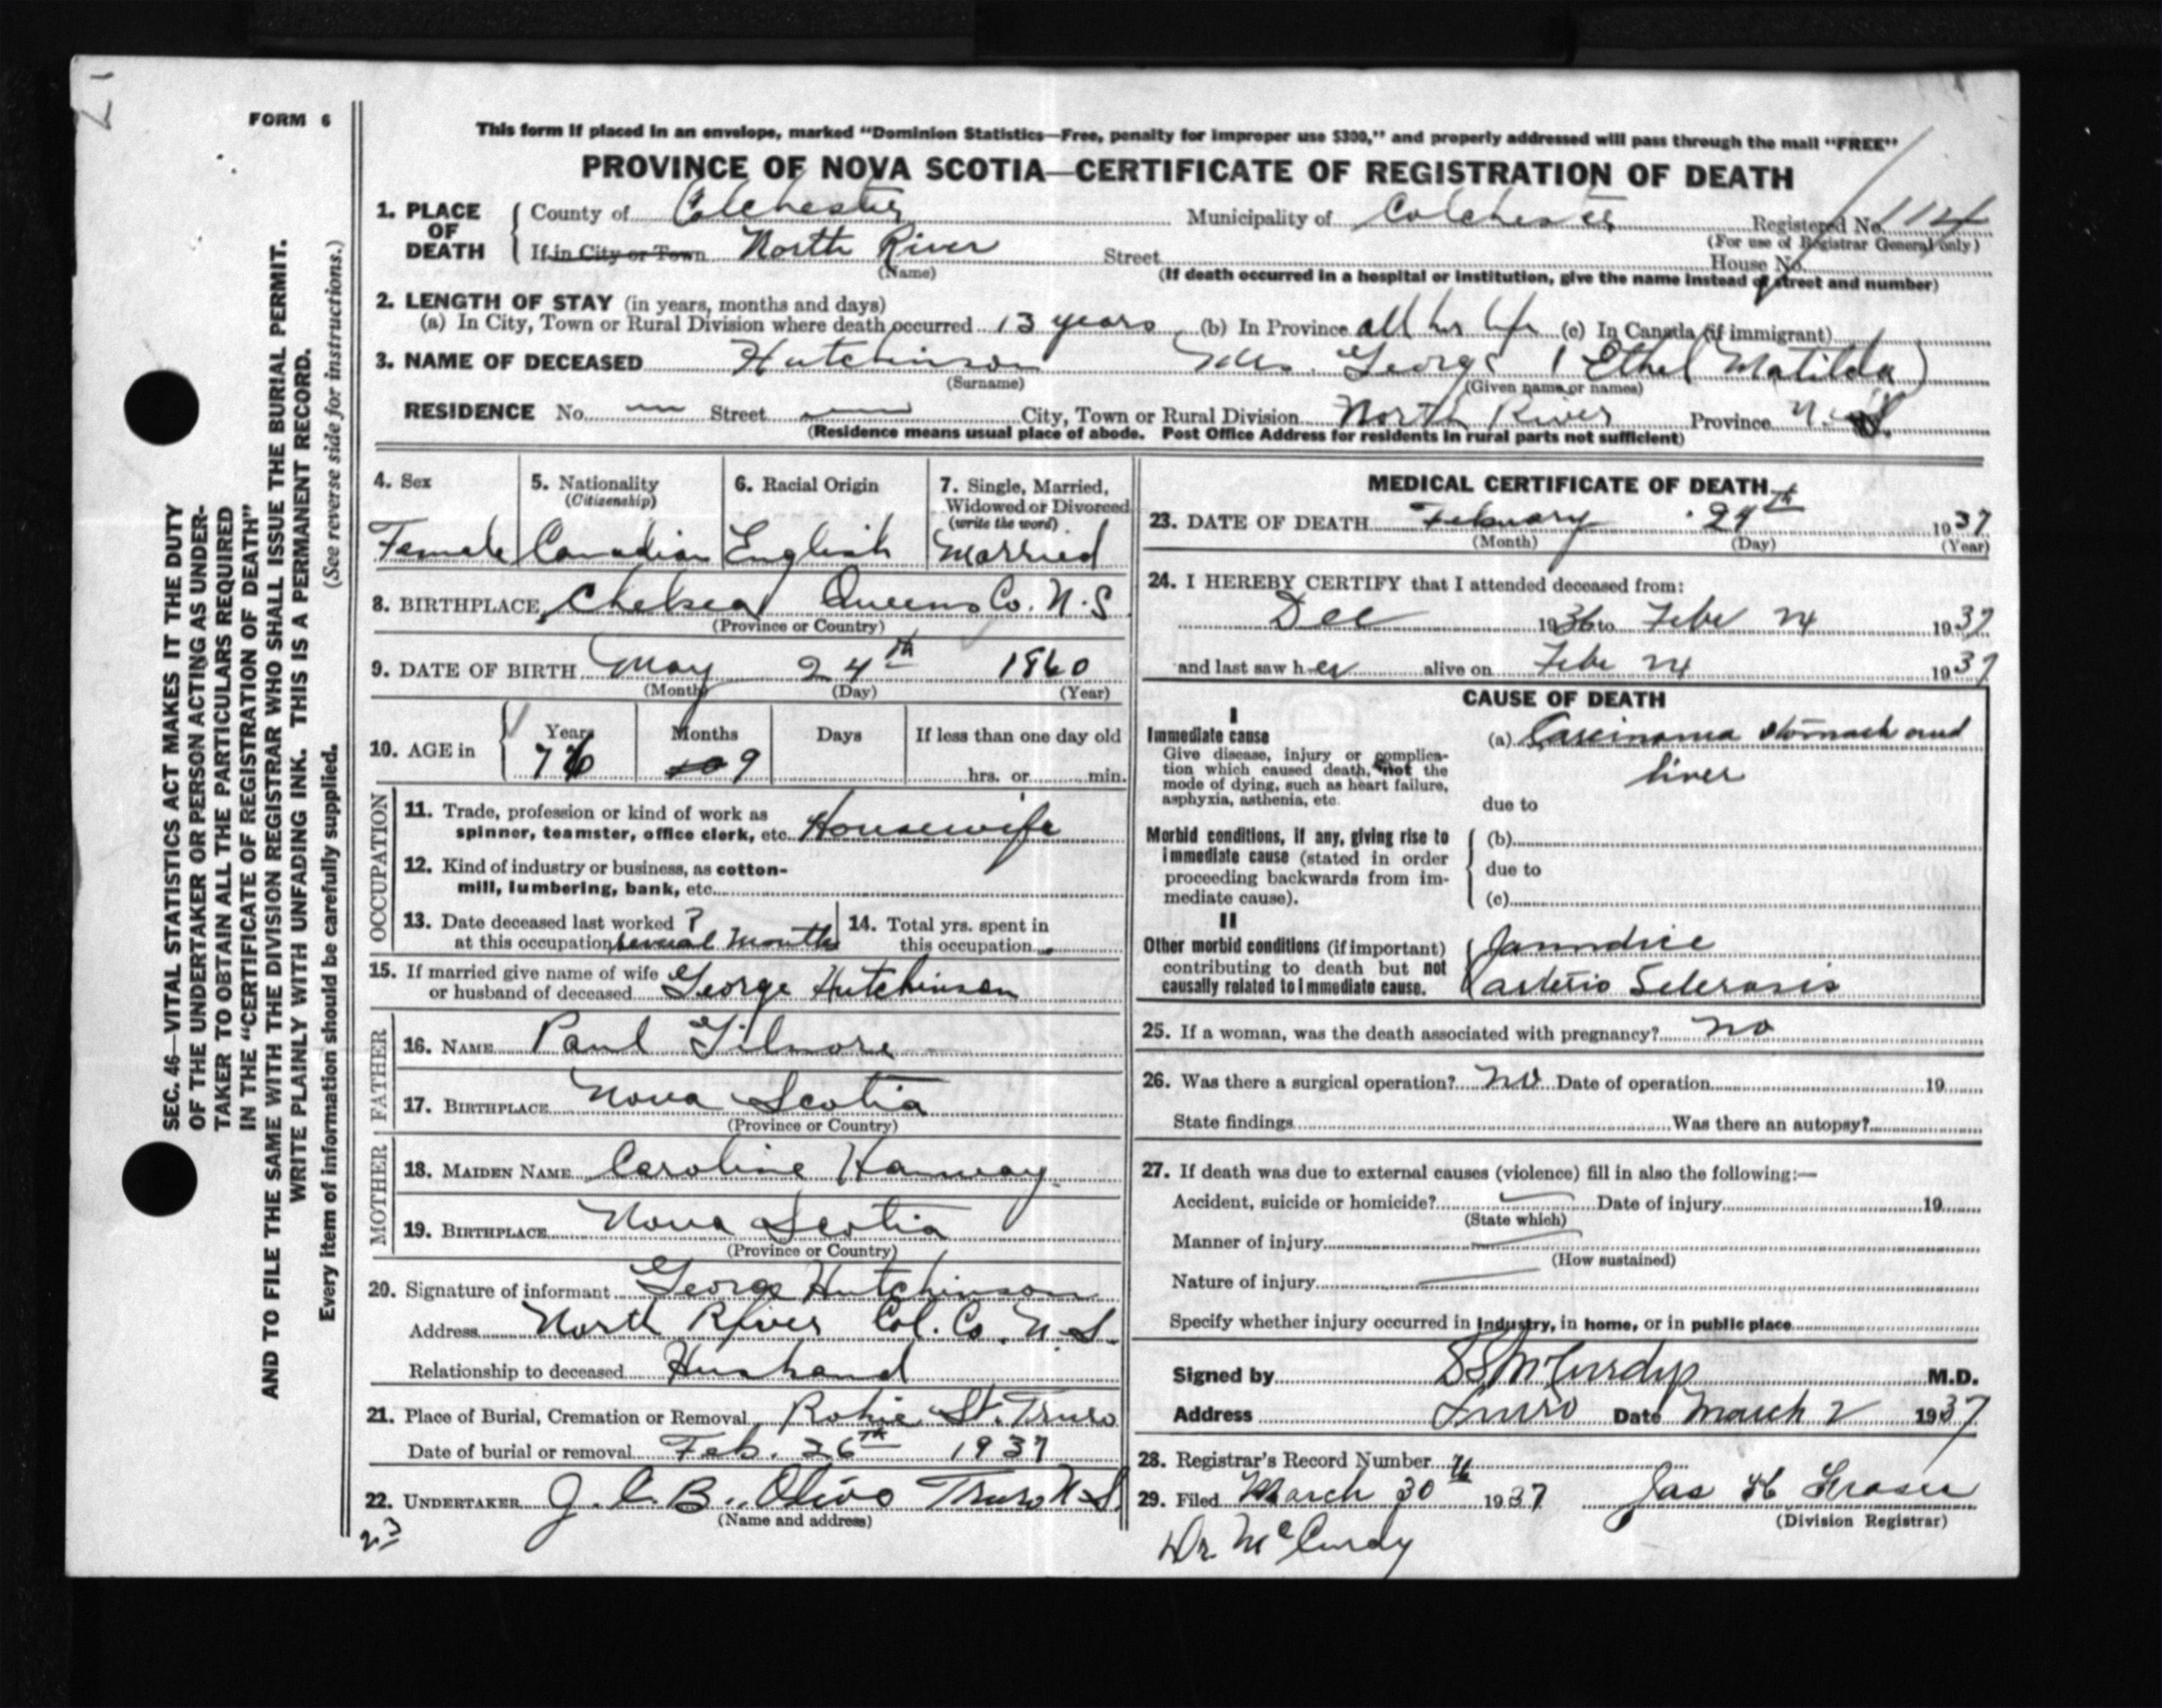 FORM 6
SEC. 46—VITAL STATISTICS ACT MAKES IT THE DUTY
OF THE UNDERTAKER OR PERSON ACTING AS UNDER-
TAKER TO OBTAIN ALL THE PARTICULARS REQUIRED
IN THE "CERTIFICATE OF REGISTRATION OF DEATH"
AND TO FILE THE SAME WITH THE DIVISION REGISTRAR WHO SHALL ISSUE THE BURIAL PERMIT.
WRITE PLAINLY WITH UNFADING INK. THIS IS A PERMANENT RECORD.
Every item of information should be carefully supplied. (See reverse side for instructions.)
This form if placed in an envelope, marked "Dominion Statistics—Free, penalty for improper use $300," and properly addressed will pass through the mail "FREE"
PROVINCE OF NOVA SCOTIA—CERTIFICATE OF REGISTRATION OF DEATH
1. PLACE OF DEATH County of Colchester Municipality of Colchester Registered No. 114
(For use of Registrar General only)
If in City or Town North River Street House No.
(Name) (If death occurred in a hospital or institution, give the name instead of street and number)
2. LENGTH OF STAY (in years, months and days)
(a) In City, Town or Rural Division where death occurred 13 years (b) In Province all her life (c) In Canada (if immigrant)
3. NAME OF DECEASED Hutchinson Mrs. George (Ethel Matilda)
(Surname) (Given name or names)
RESIDENCE No. — Street — City, Town or Rural Division North River Province N.S.
(Residence means usual place of abode. Post Office Address for residents in rural parts not sufficient)
4. Sex 5. Nationality (Citizenship) 6. Racial Origin 7. Single, Married, Widowed or Divorced (write the word)
Female Canadian English Married
8. BIRTHPLACE Chelsea Queens Co. N.S
(Province or Country)
9. DATE OF BIRTH May 24th 1860
(Month) (Day) (Year)
10. AGE in Years Months Days If less than one day old
76 9 hrs. or min.
OCCUPATION
11. Trade, profession or kind of work as
spinner, teamster, office clerk, etc. Housewife
12. Kind of industry or business, as cotton-
mill, lumbering, bank, etc.
13. Date deceased last worked ?
at this occupation several Months
14. Total yrs. spent in
this occupation
15. If married give name of wife
or husband of deceased George Hutchinson
FATHER
16. NAME Paul Gilmore
17. BIRTHPLACE Nova Scotia
(Province or Country)
MOTHER
18. MAIDEN NAME Caroline Hanway
19. BIRTHPLACE Nova Scotia
(Province or Country)
20. Signature of informant George Hutchinson
Address North River Col. Co. N.S.
Relationship to deceased Husband
21. Place of Burial, Cremation or Removal Robie St. Truro
Date of burial or removal Feb. 26th 1937
22. UNDERTAKER J.C.B. Olive Truro N.S.
(Name and address)
23
MEDICAL CERTIFICATE OF DEATH
23. DATE OF DEATH February 24th 1937
(Month) (Day) (Year)
24. I HEREBY CERTIFY that I attended deceased from:
Dec 1936 to Febr 24 1937
and last saw her alive on Febr 24 1937
CAUSE OF DEATH
I
Immediate cause
Give disease, injury or complica-
tion which caused death, not the
mode of dying, such as heart failure,
asphyxia, asthenia, etc.
(a) Carcinoma stomach and
liver
due to
Morbid conditions, if any, giving rise to
immediate cause (stated in order
proceeding backwards from im-
mediate cause).
(b)
due to
(c)
II
Other morbid conditions (if important)
contributing to death but not
causally related to immediate cause.
Jaundice
arterio Sclerosis
25. If a woman, was the death associated with pregnancy? no
26. Was there a surgical operation? no Date of operation 19
State findings Was there an autopsy?
27. If death was due to external causes (violence) fill in also the following:—
Accident, suicide or homicide? Date of injury 19
(State which)
Manner of injury
(How sustained)
Nature of injury
Specify whether injury occurred in industry, in home, or in public place
Signed by S S McCurdy M.D.
Address Truro Date March 2 1937
28. Registrar's Record Number
29. Filed March 30th 1937 Jas H Fraser
(Division Registrar)
Dr. McCurdy